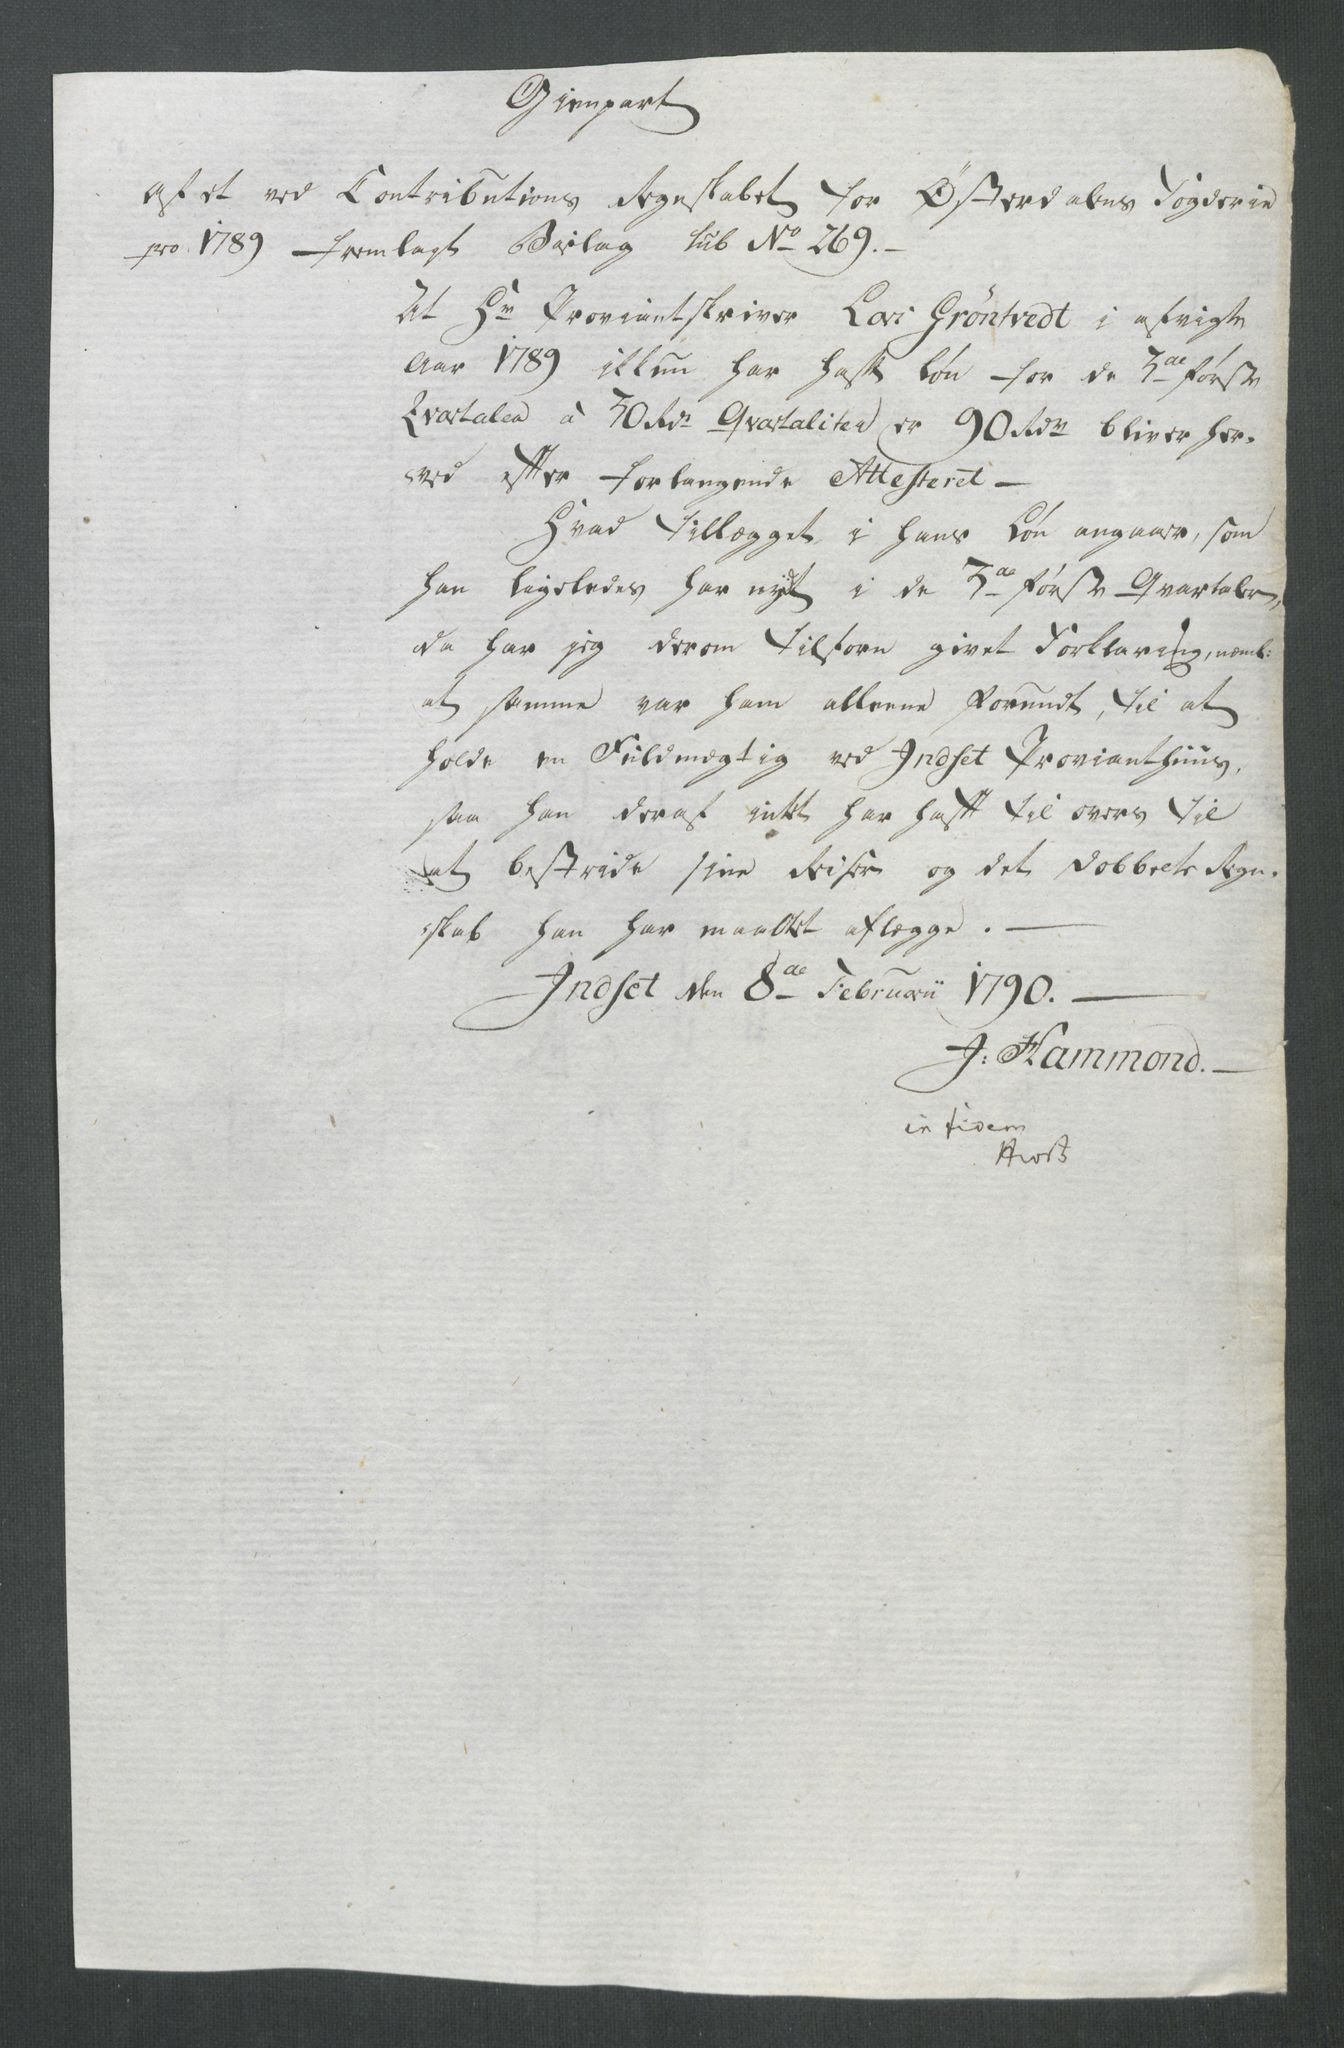 Gienpart
af et ved Contributions Regnskabet for Østerdalens Fogderie
pro 1789 fremlagt Bielag sub No 269.-
At Hr Proviantskriver Lars Gröntvedt i afvigte
Aar 1789 ikkun har haft Løn for de 3de første
Qvartaler à 30 Rdr Qvartaliter er 90 Rdr bliver her-
ved efter forlangende Attesteret —
Hvad Tillægget i hans Løn angaaer, som
han ligeledes har nydt i de 3de første Qvartaler,
da har jeg derom tilforn givet Forklaring, nemt:
at samme var ham alleene forundt, til at
holde en Fuldmægtig ved Indset Provianthuus,
saa han deraf intet har haft til overs til
at bestride sine Reiser og det dobbelte Regn-
skab han har maattet aflægge. —
Indset den 8de Februarii 1790. —
J: Hammond. —
in fidem